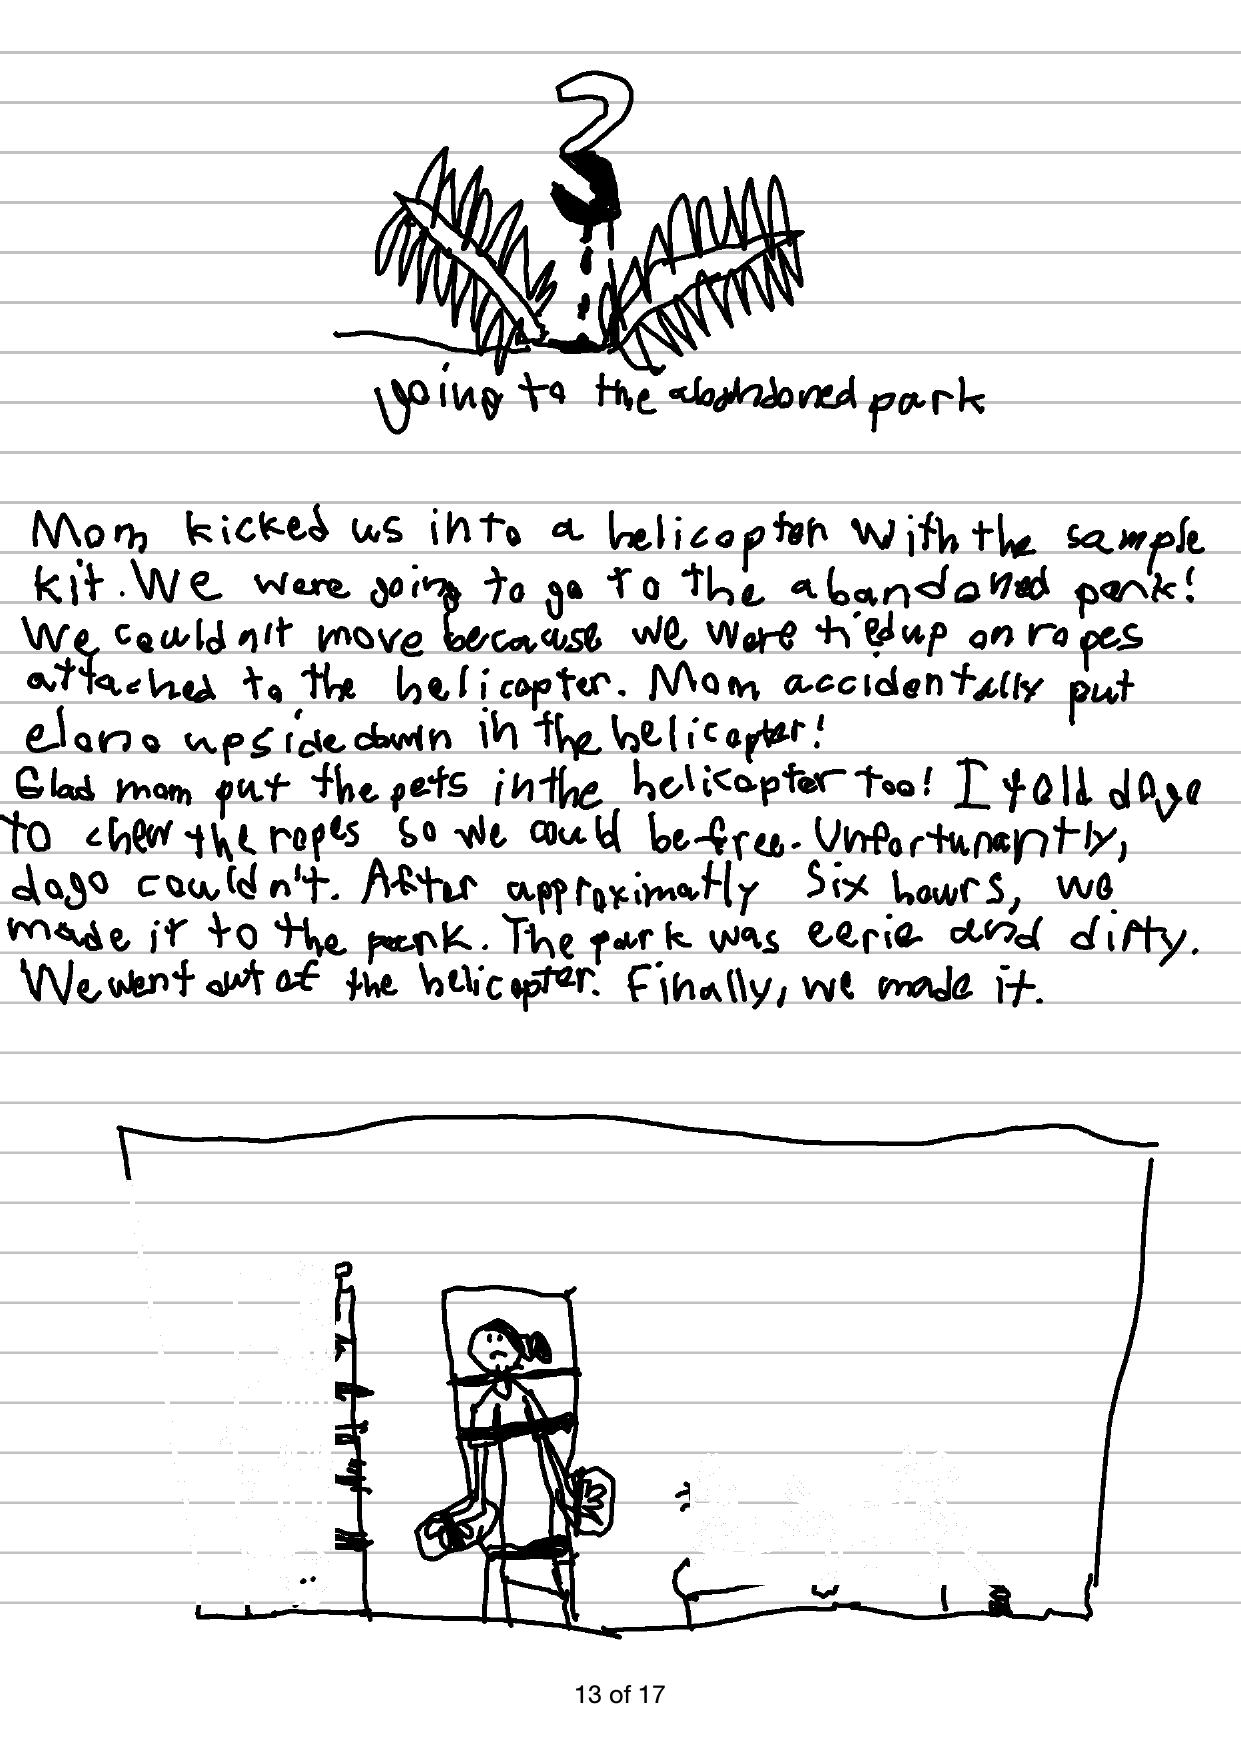 2
going to the abandoned park
Mom kicked us into a helicopter with the sample
kit. We were going to go to the abandoned park!
We couldn't move because we were tied up on ropes
attached to the helicopter. Mom accidentally put
elono upside down in the helicopter!
Glad mom put the pets in the helicopter too! I told dogo
to chew the ropes so we could be free. Unfortunantly,
dogo couldn't. After approximatly six hours, we
made it to the park. The park was eerie and dirty.
We went out of the helicopter. Finally, we made it.
13 of 17